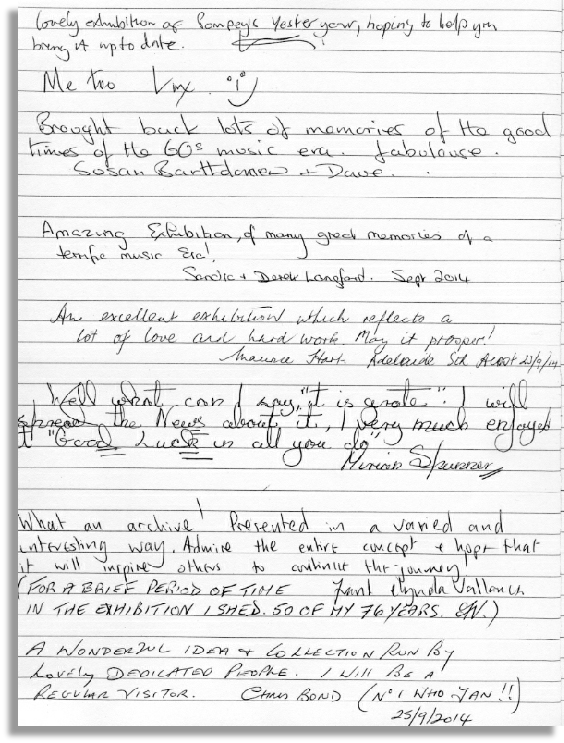 Lovely exhibition of Pompeys Yesteryear, hoping to help you
bring it up to date.
Me too
Brought back lots of memories of the good
times of the 60s music era. fabulouse.
Susan + Dave.
Amazing Exhibition, of many great memories of a
terrific music Era!
Sandra + Derek Langford. Sept 2014
An excellent exhibition which reflects a
lot of love and hard work May it prosper!
Maurice Hart Adelaide Sth
Well what can I say, "it is grate". I will
spread the News about it, I very much enjoyed
it "Good Luck in all you do"
What an archive! Presented in a varied and
interesting way. Admire the entire concept + hope that
it will inspire others to continue the journey
(FOR A BRIEF PERIOD OF TIME
IN THE EXHIBITION I SHED 50 OF MY 76 YEARS.
A WONDERFUL IDEA & COLLECTION RUN BY
LOVELY DEDICATED PEOPLE. I WILL BE A
REGULAR VISITOR. CHRIS BOND (No 1 WHO FAN!!)
25/9/2014